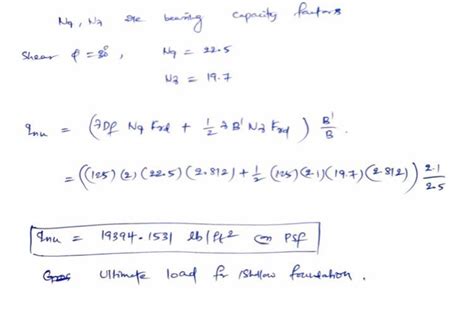 Nq, Nγ are bearing capacity factors
Shear φ = 30°, Nq = 22.5
Nγ = 19.7
qnu = (γDf Nq Fγd + 1/2 γ B' Nγ Fγd) B'/B
= ((125)(2)(22.5)(2.812) + 1/2 (125)(2.1)(19.7)(2.812)) 2.1/2.5
qnu = 19394.1531 lb/ft² or Psf
Ultimate load for shallow foundation.